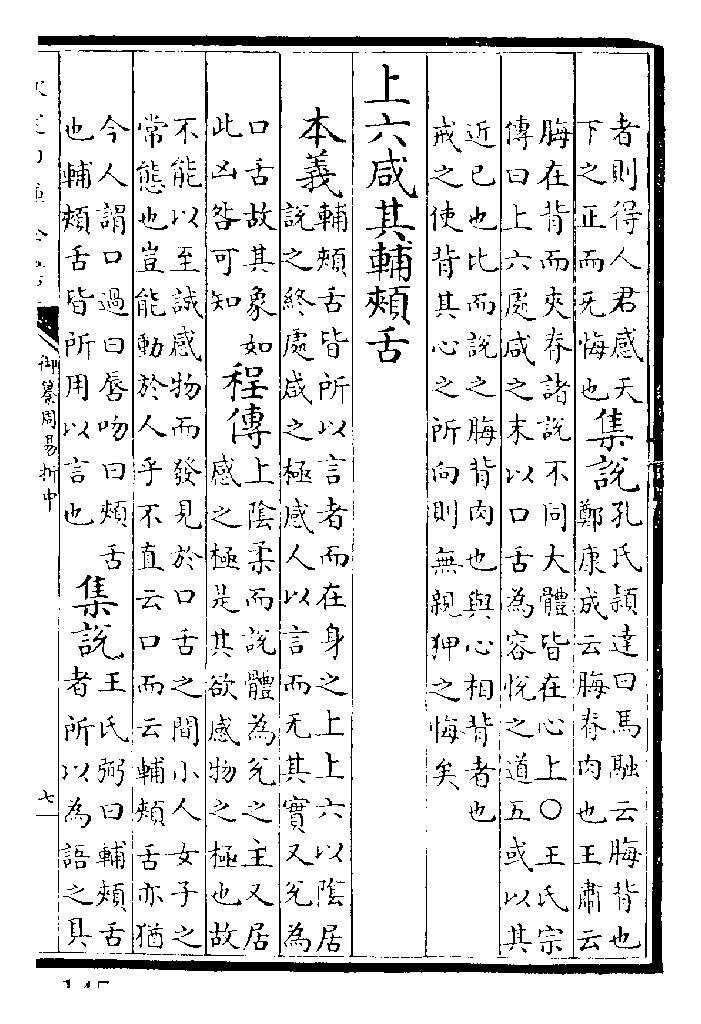 者則得人君感天
下之正而无悔也
集說
孔氏穎達曰馬融云脢背也
鄭康成云脢脊肉也王肅云
脢在背而夾脊諸說不同大體皆在心上○王氏宗
傳曰上六處咸之末以口舌為容悅之道五或以其
近已也比而說之脢背肉也與心相背者也
戒之使背其心之所向則無親狎之悔矣
上六咸其輔頰舌
本義
輔頰舌皆所以言者而在身之上上六以陰居
說之終處咸之極感人以言而无其實又兌為
口舌故其象如
此凶咎可知
程傳
上陰柔而說體為兌之主又居
感之極是其欲感物之極也故
不能以至誠感物而發見於口舌之間小人女子之
常態也豈能動於人乎不直云口而云輔頰舌亦猶
今人謂口過曰唇吻曰頰舌
也輔頰舌皆所用以言也
集說
王氏弼曰輔頰舌
者所以為語之具
御纂周易折中
七